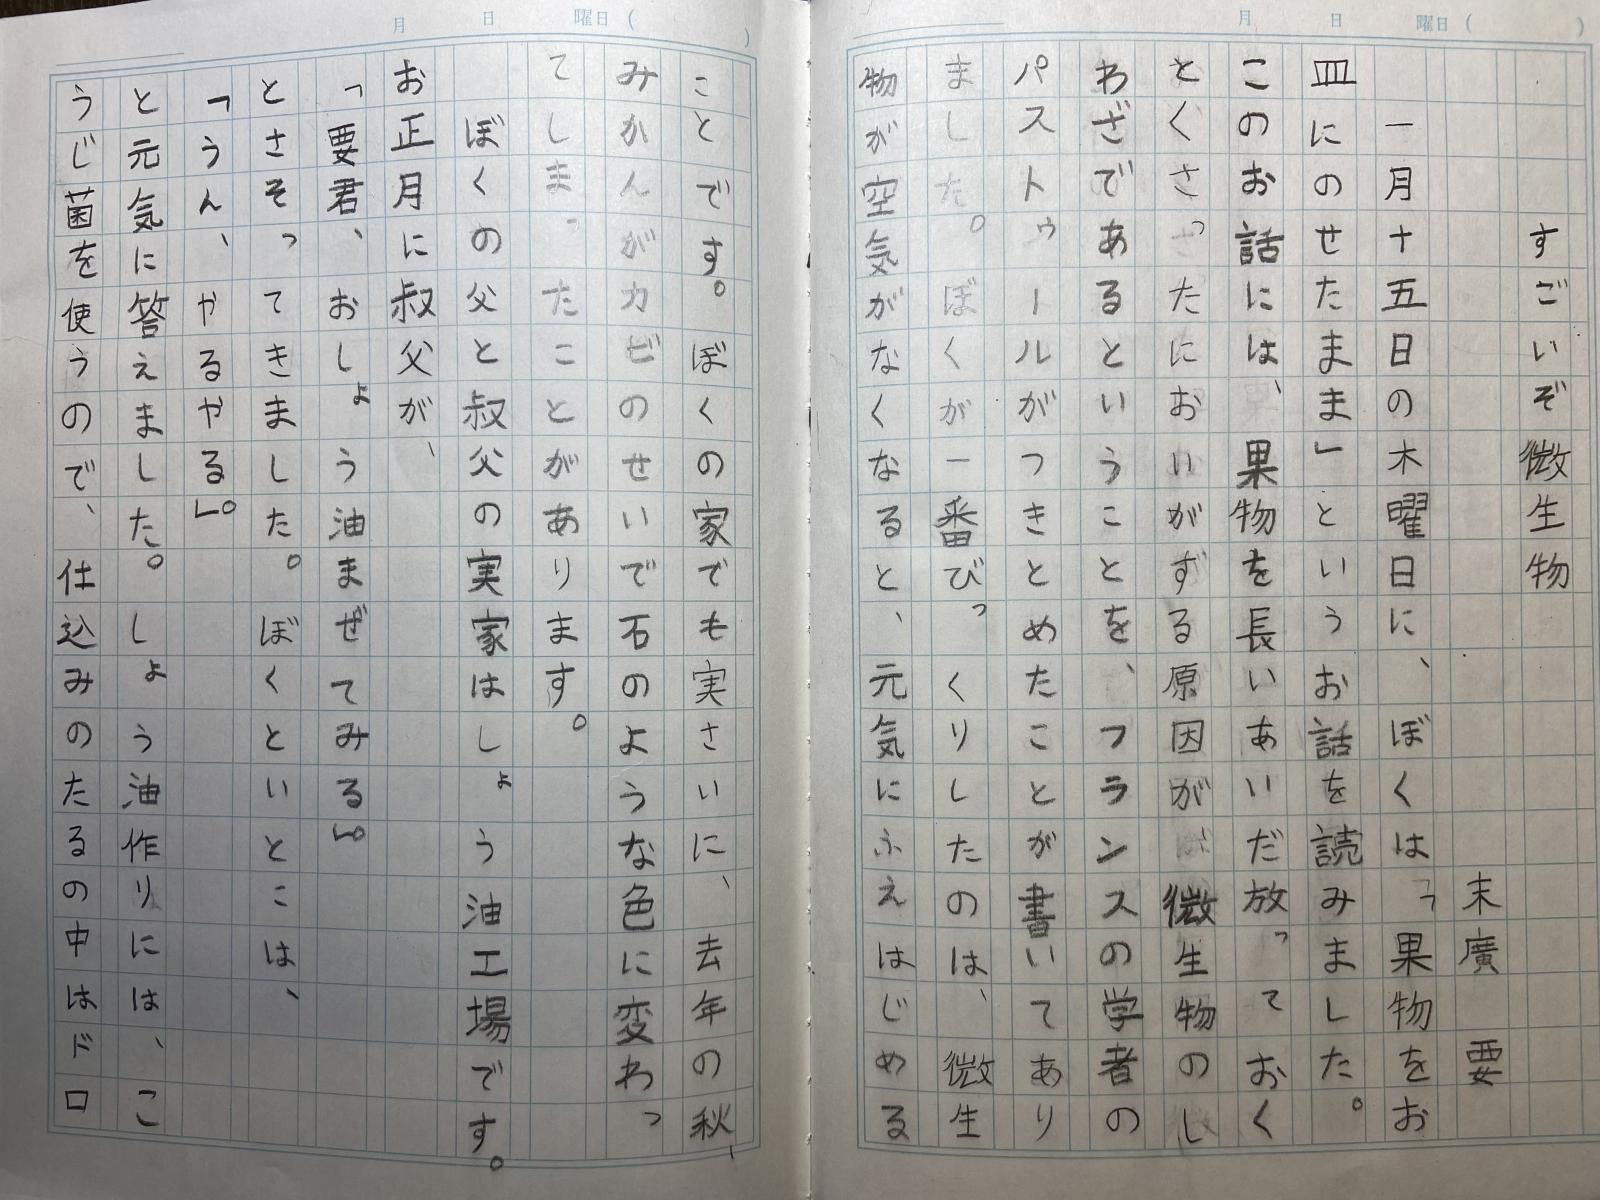 月　日　曜日（　）
すごいぞ微生物
末廣　要
一月十五日の木曜日に、ぼくは「果物をお
皿にのせたまま」というお話を読みました。
このお話には、果物を長いあいだ放っておく
とくさったにおいがずる原因が微生物のし
わざであるということを、フランスの学者の
パストゥールがつきとめたことが書いてあり
ました。ぼくが一番びっくりしたのは、微生
物が空気がなくなると、元気にふえはじめる
月　日　曜日（　）
ことです。ぼくの家でも実さいに、去年の秋、
みかんがカビのせいで石のような色に変わっ
てしまったことがあります。
ぼくの父と叔父の実家はしょう油工場です。
お正月に叔父が、
「要君、おしょう油まぜてみる」。
とさそってきました。ぼくといとこは、
「うん、やるやる」。
と元気に答えました。しょう油作りには、こ
うじ菌を使うので、仕込みのたるの中はドロ